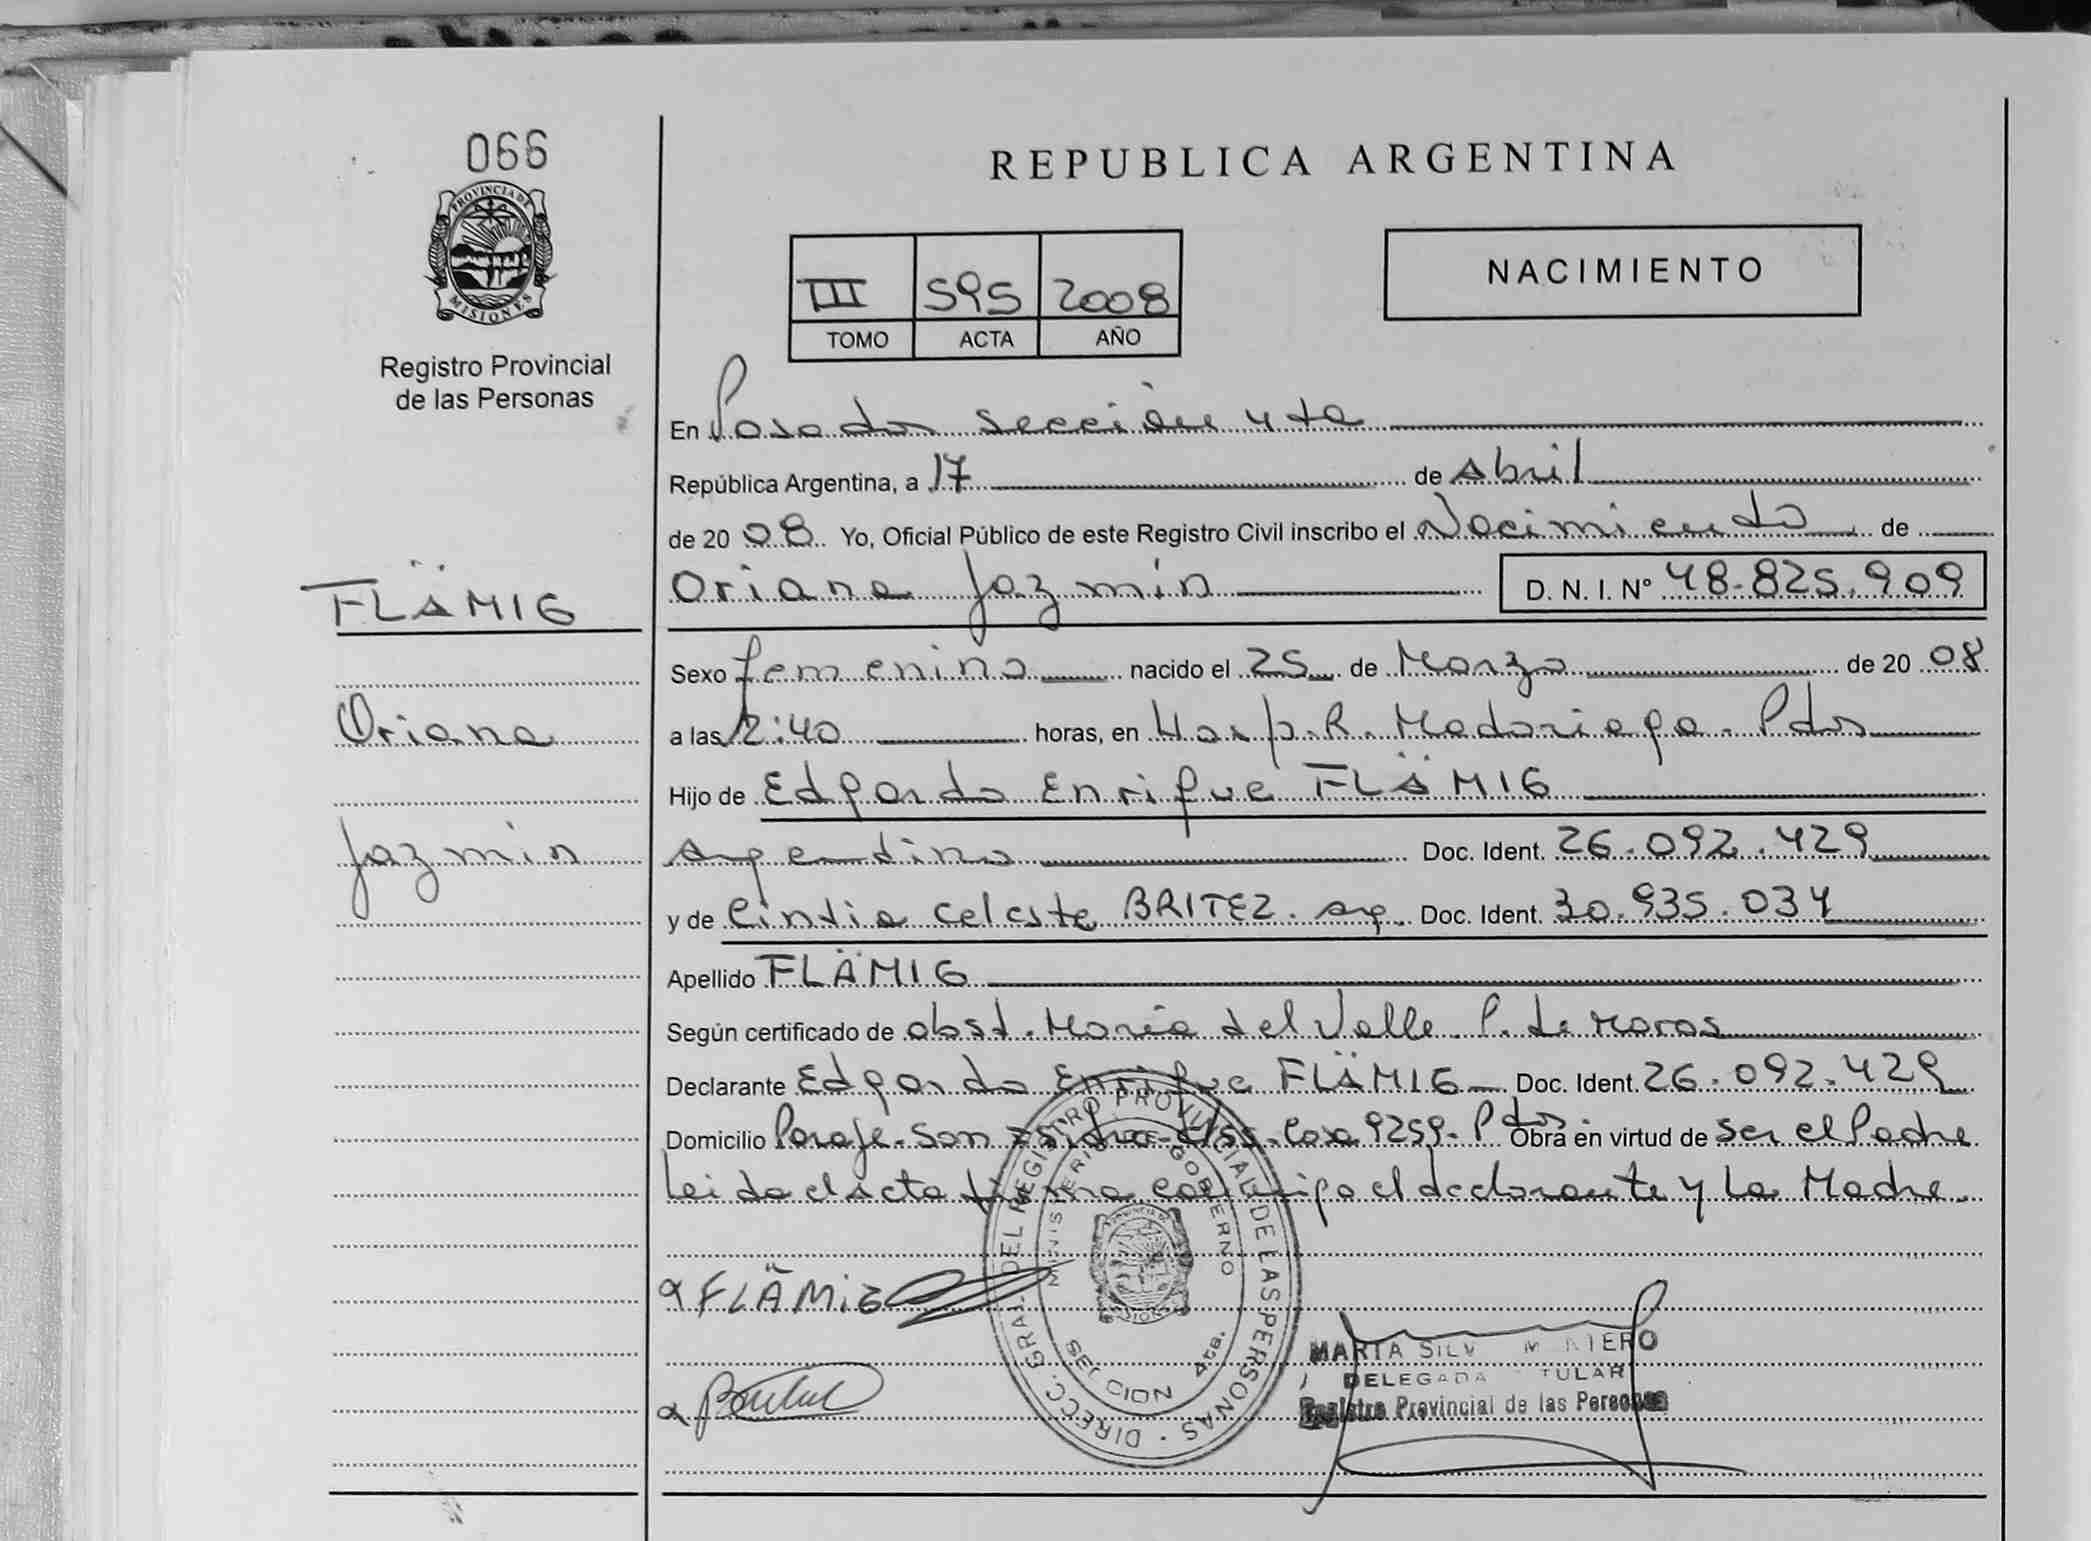 066
PROVINCIA DE
MISIONES
Registro Provincial
de las Personas
REPUBLICA ARGENTINA
III 595 2008
TOMO ACTA AÑO
NACIMIENTO
En Posadas sección 4ta
República Argentina, a 17 de Abril
de 2008 Yo, Oficial Público de este Registro Civil inscribo el Nacimiento de
FLÄMIG
Oriana Jazmín D. N. I. Nº 48.825.909
Sexo femenino nacido el 25 de Marzo de 2008
Oriana
a las 12:40 horas, en Hosp. R. Madariaga. Pdas
Hijo de Edgardo Enrique FLÄMIG
Jazmín
argentino Doc. Ident. 26.092.429
y de Cintia Celeste BRITEZ. arg. Doc. Ident. 30.935.034
Apellido FLÄMIG
Según certificado de obst. María del Valle P. de Maras
Declarante Edgardo Enrique FLÄMIG Doc. Ident. 26.092.429
Domicilio Paraje San Isidro Casa 9259. Pdas Obra en virtud de ser el Padre
Leida el acta firma conmigo el declarante y la Madre.
FLÄMIG
DIRECC. GRAL. DEL REGISTRO PROVINCIAL DE LAS PERSONAS
MINISTERIO GOBERNO
SECCION 4ta.
MARTA SILV
DELEGADA TITULAR
Registro Provincial de las Personas